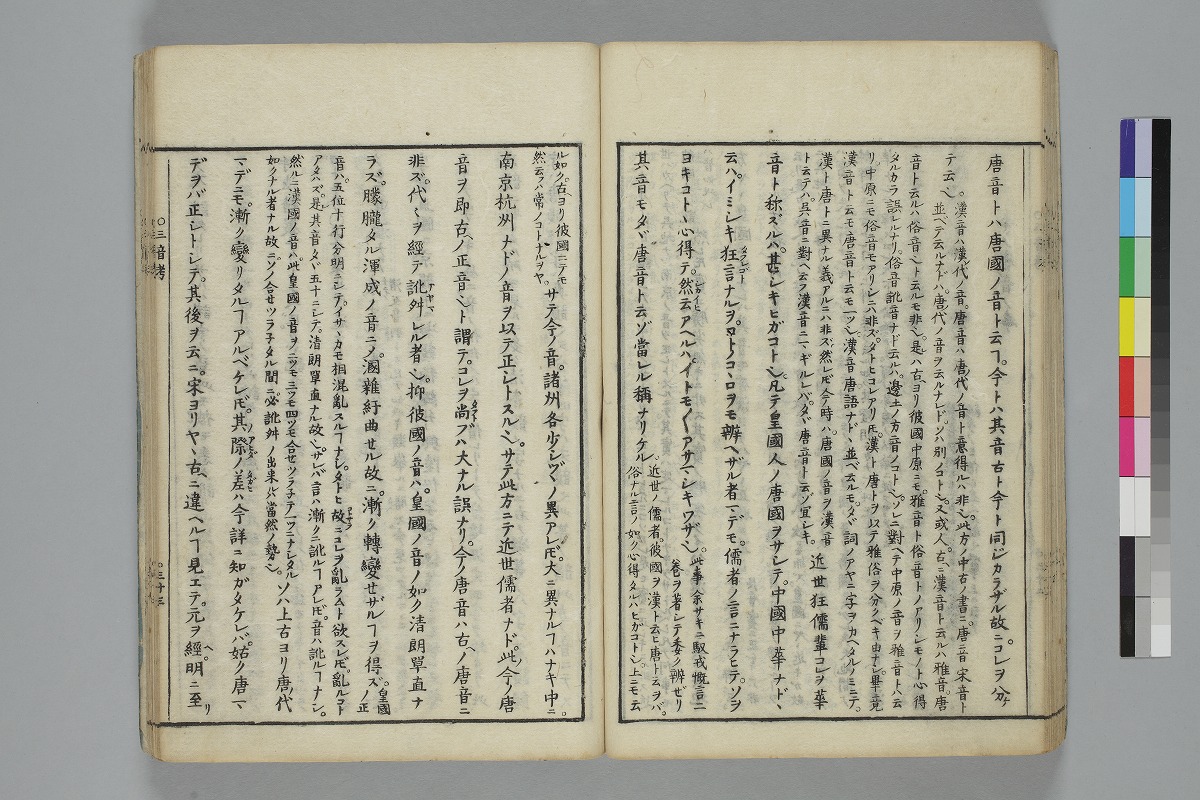 唐音トハ唐國ノ音ト云フ。今トハ其音古ト今ト同ジカラザル故ニ。コレヲ分ケ
テ云ヘ。漢音ハ漢代ノ音。唐音ハ唐代ノ音ト意得ルハ非ヘ。此方ノ中古ノ書ニ。唐音宋音ト
並ベテ云ルナドハ。唐代ノ音ヲ云ルナレド。ソハ別ノコトヘ。又或人。古ニ漢音ト云ルハ雅音。唐
音ト云ルハ俗音ヘト云ルモ非ヘ。是ハ古ヨリ彼國中原ニモ。雅音ト俗音トノアリシモノト心得
タルカラ誤レルナリ。俗音訛音ナド云ルハ。邊土ノ方音ノコトヘ。ソレニ對ヘテ中原ノ音ヲ雅音トハ云
リ。中原ニモ俗音モアリシニハ非ズ。タトヒコレアリ𪜈。漢ト唐トヲ以テ雅俗ヲ分クベキ由ナシ。畢竟
漢音ト云モ唐音ト云モ一ツヘ。漢音唐語ナド、並ベ云ルモ。タヾ詞ノアヤニ字ヲカヘタルノミニテ。
漢ト唐トニ異ナル義アルニハ非ズ。然レ𪜈今時ハ。唐國ノ音ヲ漢音
ト云テハ。呉音ニ對ヘ云フ漢音ニマギルレバ。タヾ唐音ト云ゾ宜シキ。近世狂儒輩コレヲ華
音ト称ズルハ。甚シキヒガコトヘ。凡テ皇國人ノ唐國ヲサシテ。中國中華ナド、
云ハ。イミシキ狂言ナルヲ。ヨトノコヽロヲモ辨ヘザル者マデモ。儒者ノ言ニナラヒテ。ソヲ
ヨキコト、心得テ。然云アヘルハ。イトモ〳〵アサマシキワザヘ。此事余サキニ馭戎慨言二
巻ヲ著シテ委ク辨ゼリ
其音モタヾ唐音ト云ゾ當レル稱ナリケル。近世ノ儒者。彼國ヲ漢ト云ヒ唐ト云ヲバ。
俗ナル言ノ如ク心得タルハヒガコトヘ。上ニモ云
ル如ク。古ヨリ彼國ニテモ
然云フハ常ノコトナルヲヤ。サテ今ノ音。諸州各少シヅヽノ異アレ𪜈。大ニ異ナルフハナキ中ニ。
南京杭州ナドノ音ヲ以テ正シトスルヘ。サテ此方ニテ近世儒者ナド。此今ノ唐
音ヲ即古ノ正音ヘト謂テ。コレヲ尚ブハ大ナル誤ナリ。今ノ唐音ハ古ノ唐音ニ
非ズ。代々ヲ經テ訛舛レル者ヘ。抑彼國ノ音ハ。皇國ノ音ノ如ク清朗單直ナ
ラズ。朦朧タル渾成ノ音ニノ。溷雜紆曲セル故ニ。漸ク轉變セザルフヲ得ズ。皇國ノ正
音ハ。五位十行分明ニシテ。イサヽカモ相混亂スルフナシ。タトヒ故ニコレヲ亂ラムト欲スレ𪜈。亂ルコト
アタハズ。是其音タヾ五十ニシテ。清朗單直ナル故ヘ。サレバ言ハ漸クニ訛ルフアレ𪜈。音ハ訛ルフナシ。
然ルニ漢國ノ音ハ。此皇國ノ音ヲ。ニツモ三ツモ四ツモ合セツラ子テ一ツニナレルタル
如クナル者ナル故ニ。ソノ合セツラ子タル間ニ。必訛舛ノ出来ルハ當然ノ勢ヘ。ソハ上古ヨリ唐代
マデニモ。漸ク變リタルフアルベケレ𪜈。其際ノ差ハ今詳ニ知ガタケレバ。姑ク唐マ
デヲバ正シトシテ。其後ヲ云ニ。宋ヨリヤヽ古ニ違ヘルフ見エテ。元ヲ經。明ニ至リ
〇三音考
〇三十三